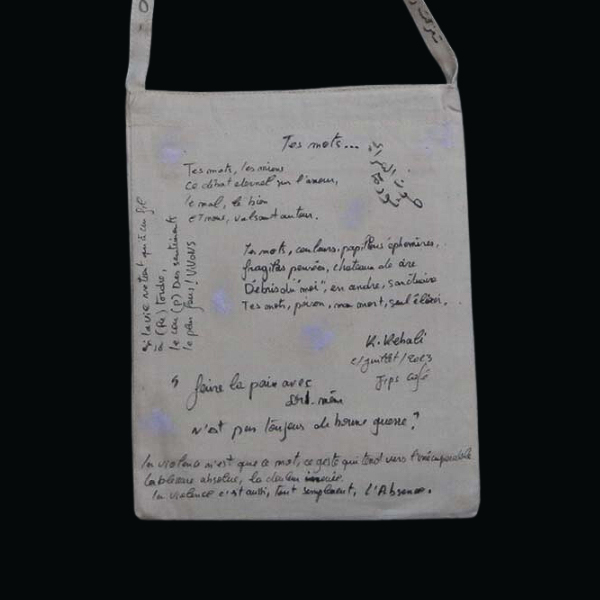 Tes mots...
Tes mots, les miens
ce débat eternel sur l'amour,
le mal, le bien
et nous, valsant autour.
Tes mots, couleurs, papillons éphémères,
fragiles pensées, chateaux de
Débris du "moi", en cendre, sanctuaire
Tes mots, poison, ma mort,
K. Kehali
2/juillet/2023
Jips café
si la vie ne tient qu'à un fil
à (Re) tordre,
le cou (p) Des sentiments
le plus fous! VIVONS
"faire la paix avec
soi-même
n'est pas toujours de bonne guerre"
la violence n'est que ce mot, ce geste qui tend vers l'irréparable
la blessure absolue, la douleur
la violence c'est aussi, tout simplement, l'Absence.